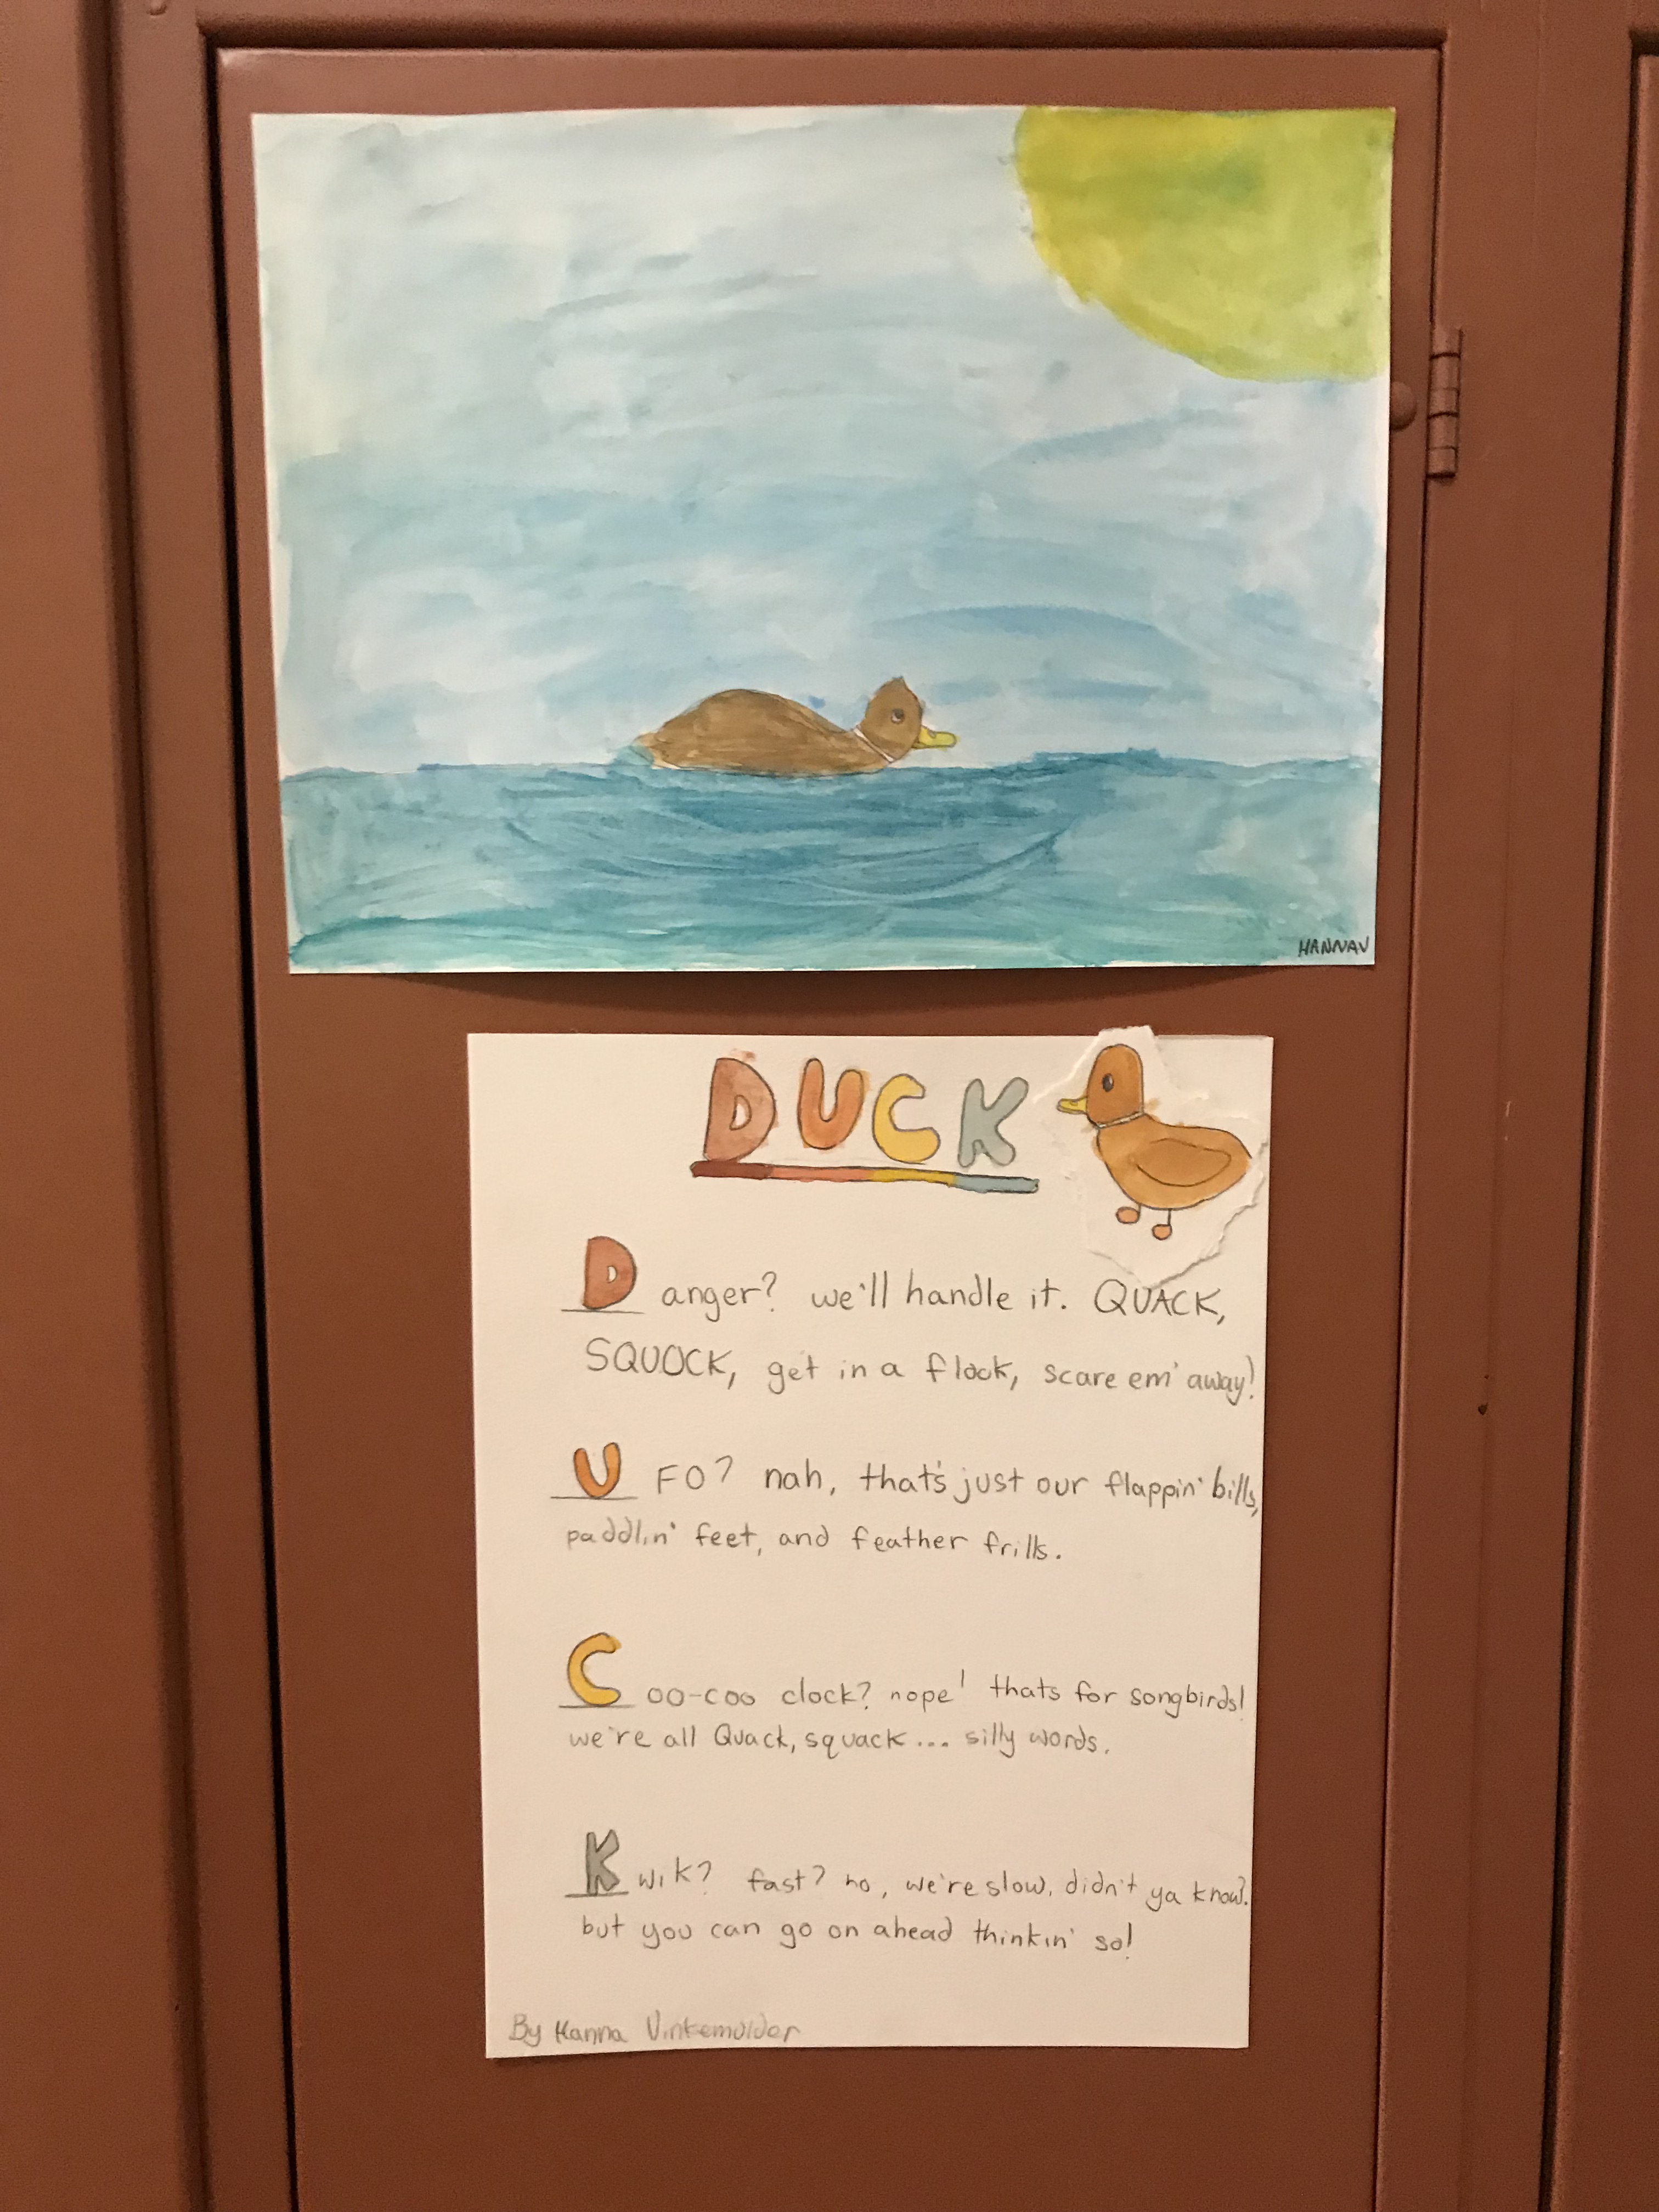 HANNAV
DUCK
Danger? we'll handle it. QUACK,
SQUOCK, get in a flock, scare em' away!
UFO? nah, that's just our flappin' bills,
paddlin' feet, and feather frills.
Coo-coo clock? nope! thats for songbirds!
we're all Quack, squack... silly words.
Kwik? fast? no, we're slow, didn't ya know?
but you can go on ahead thinkin' so!
By Hanna Vinkemulder